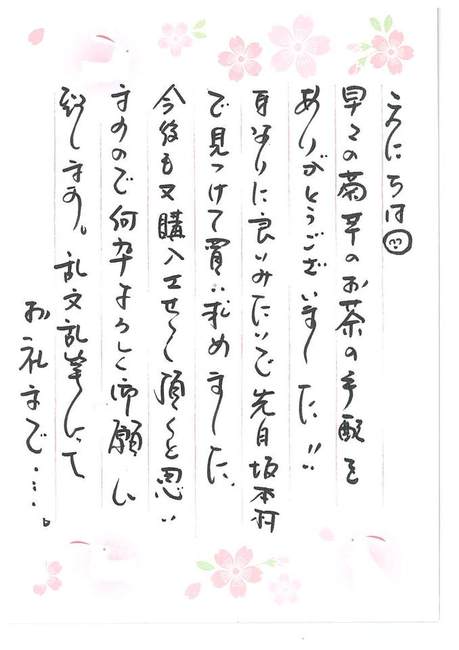 こんにちは
早々の菊芋のお茶の手配を
ありがとうございました!!
身なりに良いみたいで先日坂本村
で見つけて買い求めました
今後も又購入させて頂くと思い
ますので何卒よろしく御願い
致します。乱文乱筆にて
お礼まで…。